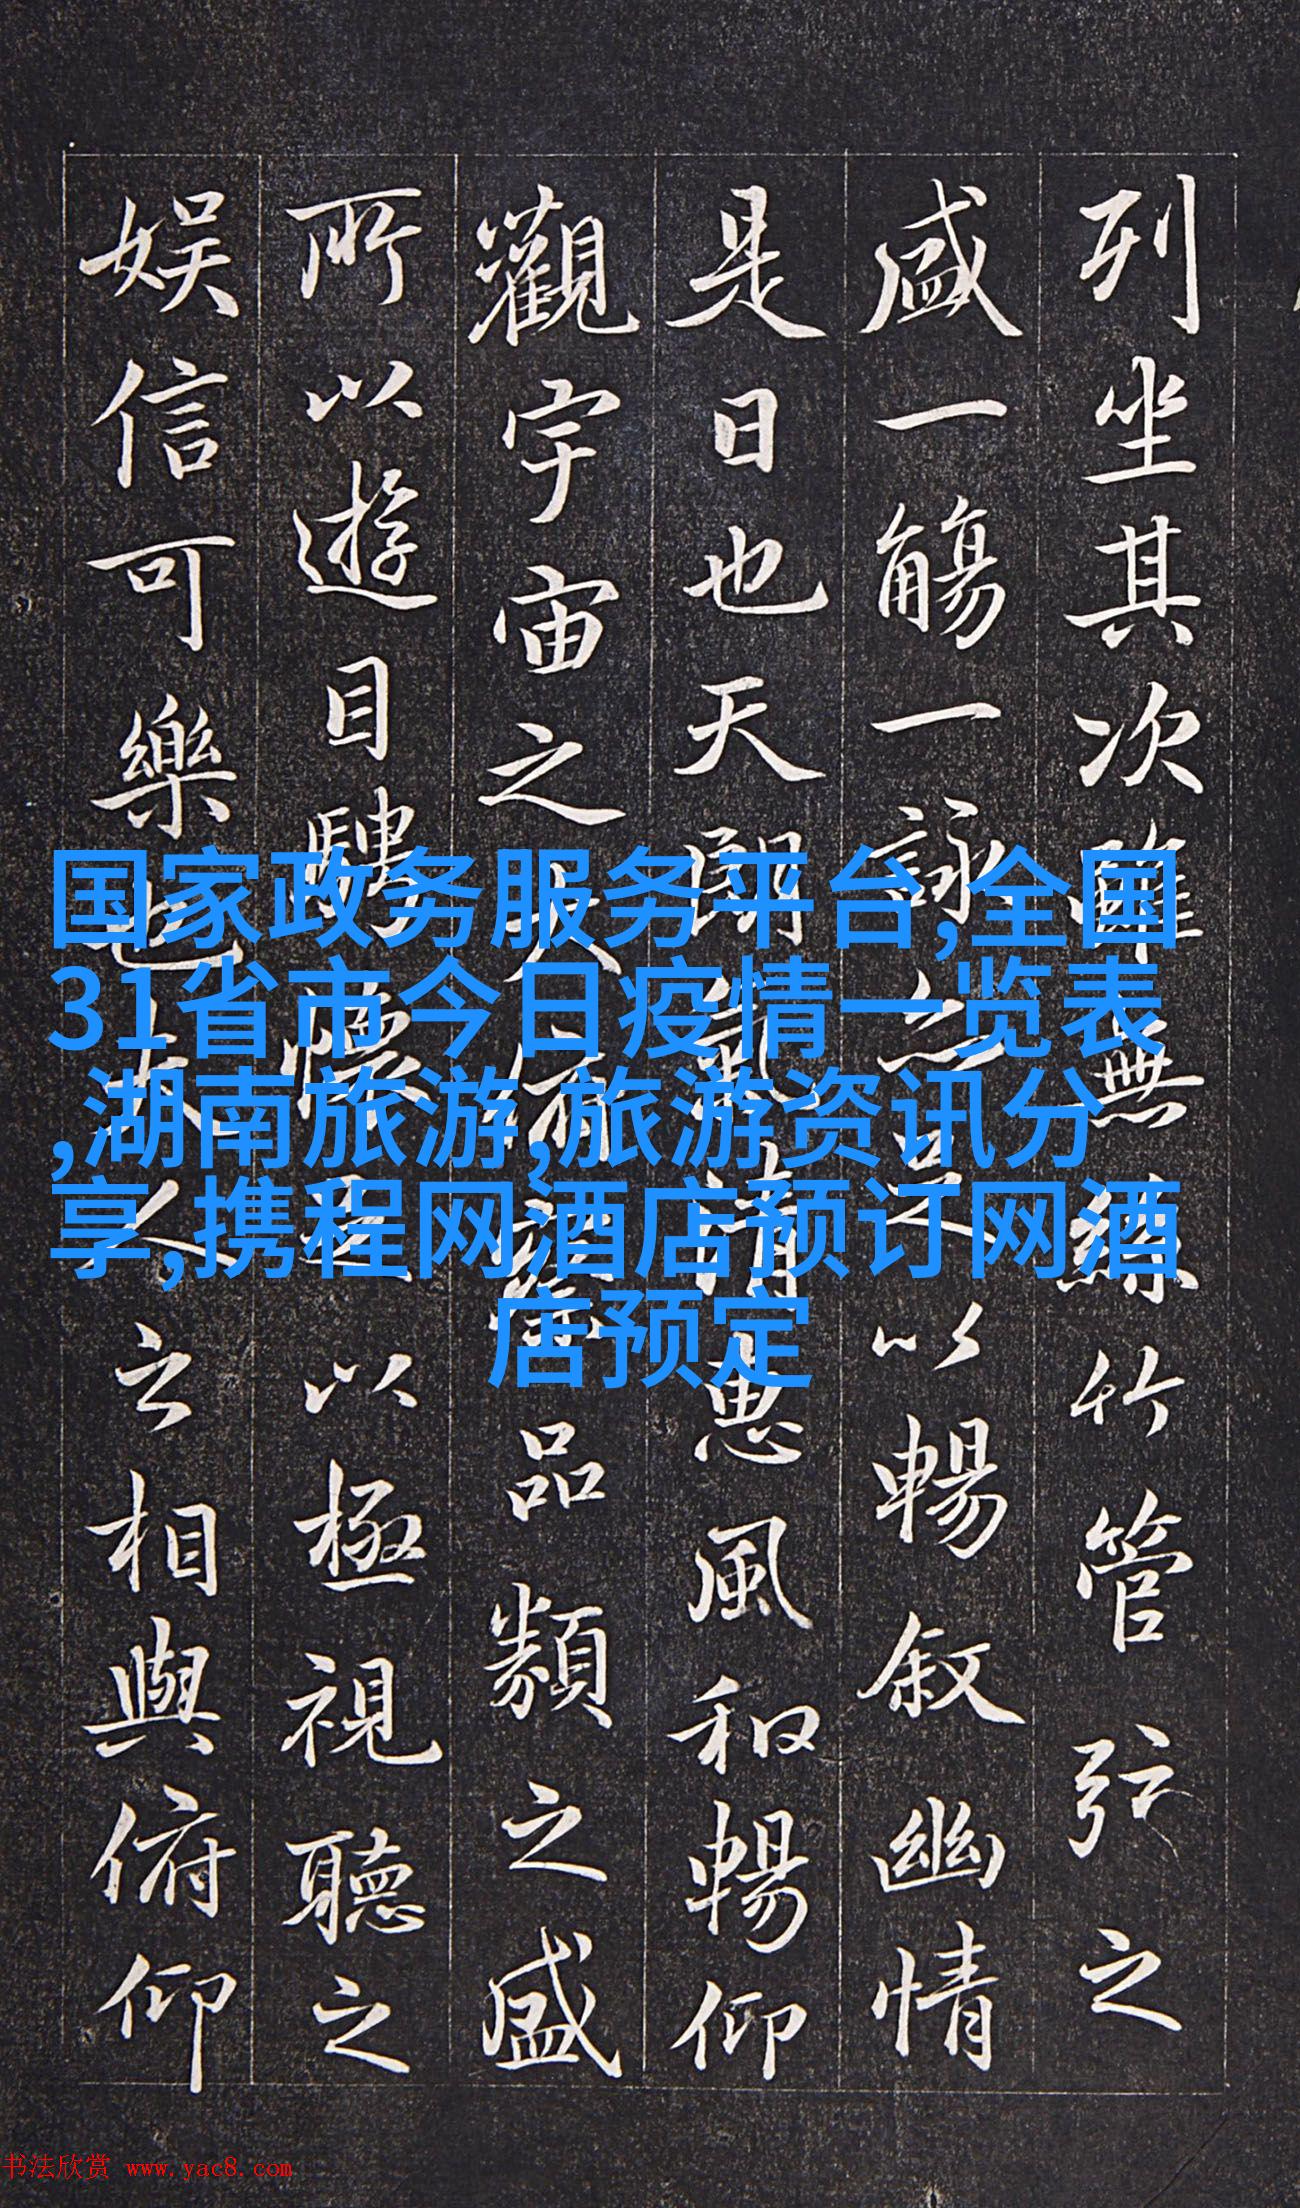 列坐其次雖無絲竹管弦之
盛一觴一詠亦足以暢叙幽情
是日也天朗氣清惠風和暢仰
觀宇宙之大俯察品類之盛
所以遊目騁懷足以極視聽之
娱信可樂也夫人之相與俯仰
国家政务服务平台,全国
31省市今日疫情一览表
,湖南旅游,旅游资讯分
享,携程网酒店预订网酒
店预定
书法欣赏 www.yac8.com